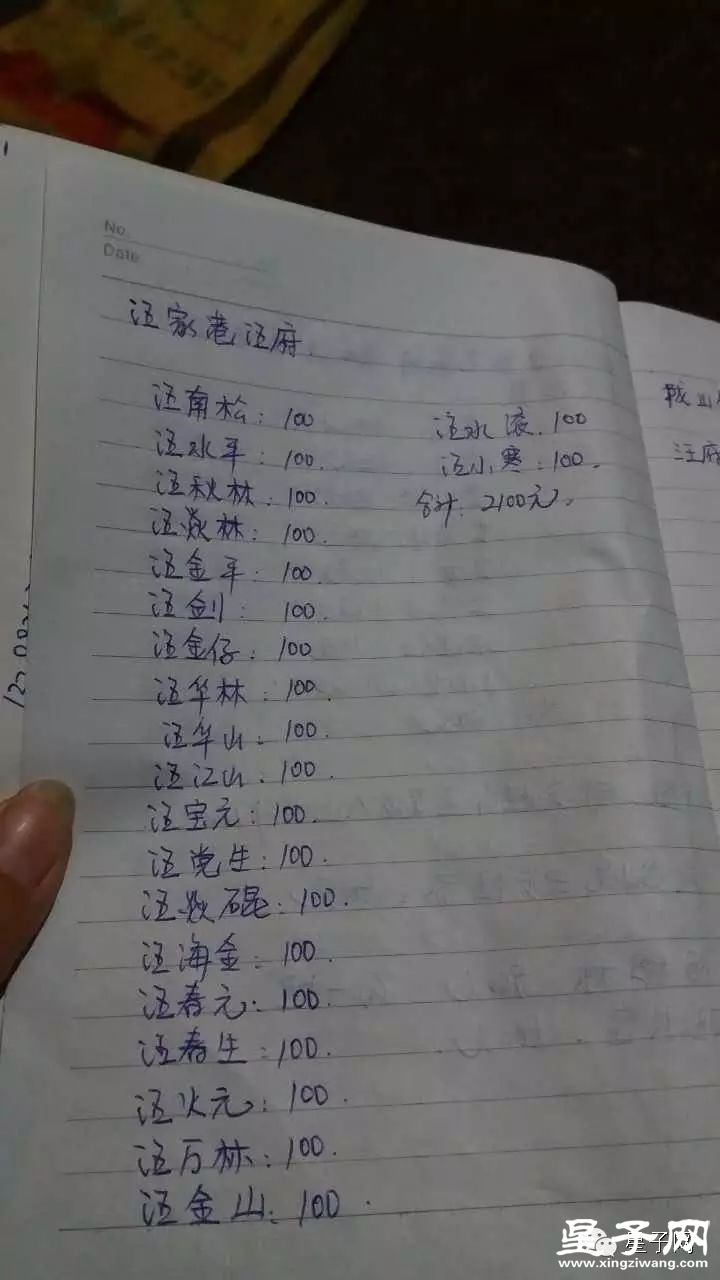 No.
Date
汪家巷汪府
汪南松：100
汪水平：100.
汪秋林：100.
汪焱林：100.
汪金平：100.
汪剑：100.
汪金仔：100
汪华林：100.
汪华山：100.
汪江山：100.
汪宝元：100.
汪党生：100.
汪 磙：100.
汪海金：100.
汪春元：100.
汪春生：100.
汪火元：100.
汪万林：100.
汪金山：100.
汪水液.100
汪小寒：100.
合计：2100元.
汪府
星子网
星子网
www.xingziwang.com